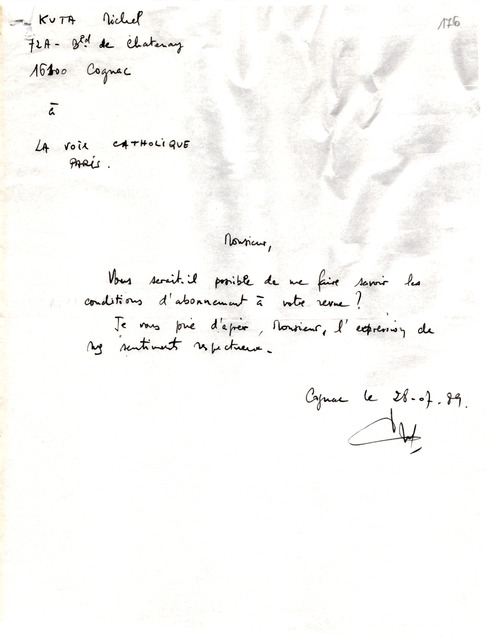 KUTA Michel
176
72A - Bld de Chatenay
16100 Cognac
à
LA VOIX CATHOLIQUE
PARIS.
Monsieur,
Vous serait-il possible de me faire savoir les
conditions d'abonnement à votre revue ?
Je vous prie d'agréer, Monsieur, l'expression de
mes sentiments respectueux.
Cognac le 28-07-89.